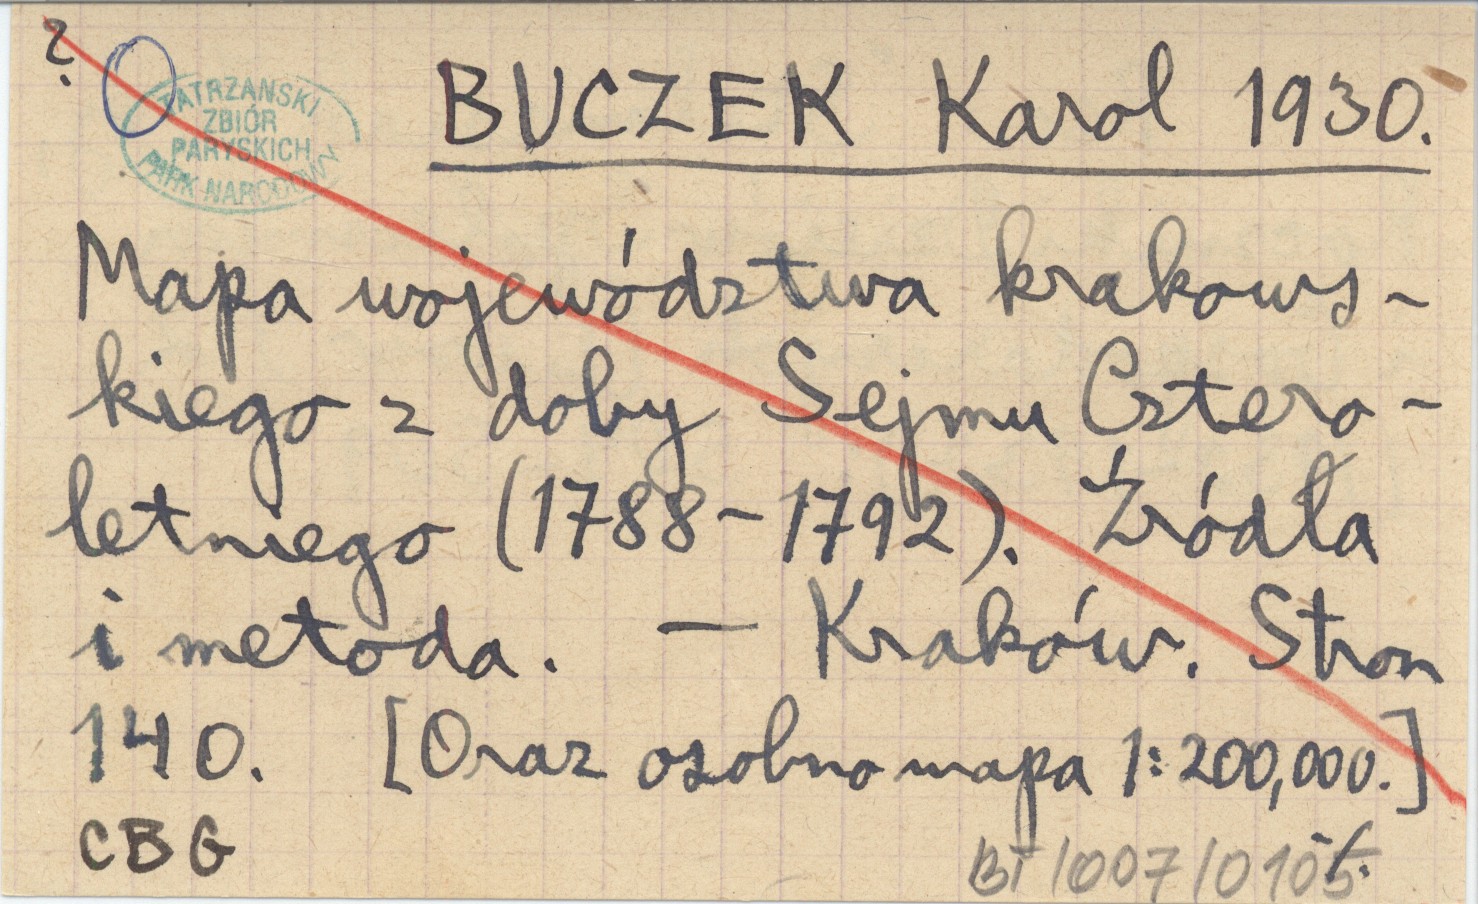 ?
TATRZAŃSKI
ZBIÓR
PARYSKICH
PARK NARODOWY
BUCZEK Karol 1930.
Mapa województwa krakows-
kiego z doby Sejmu Cztero-
letniego (1788-1792). Źródła
i metoda. — Kraków. Stron
140. [Oraz osobno mapa 1:200,000.]
CBG
BT/007/0105